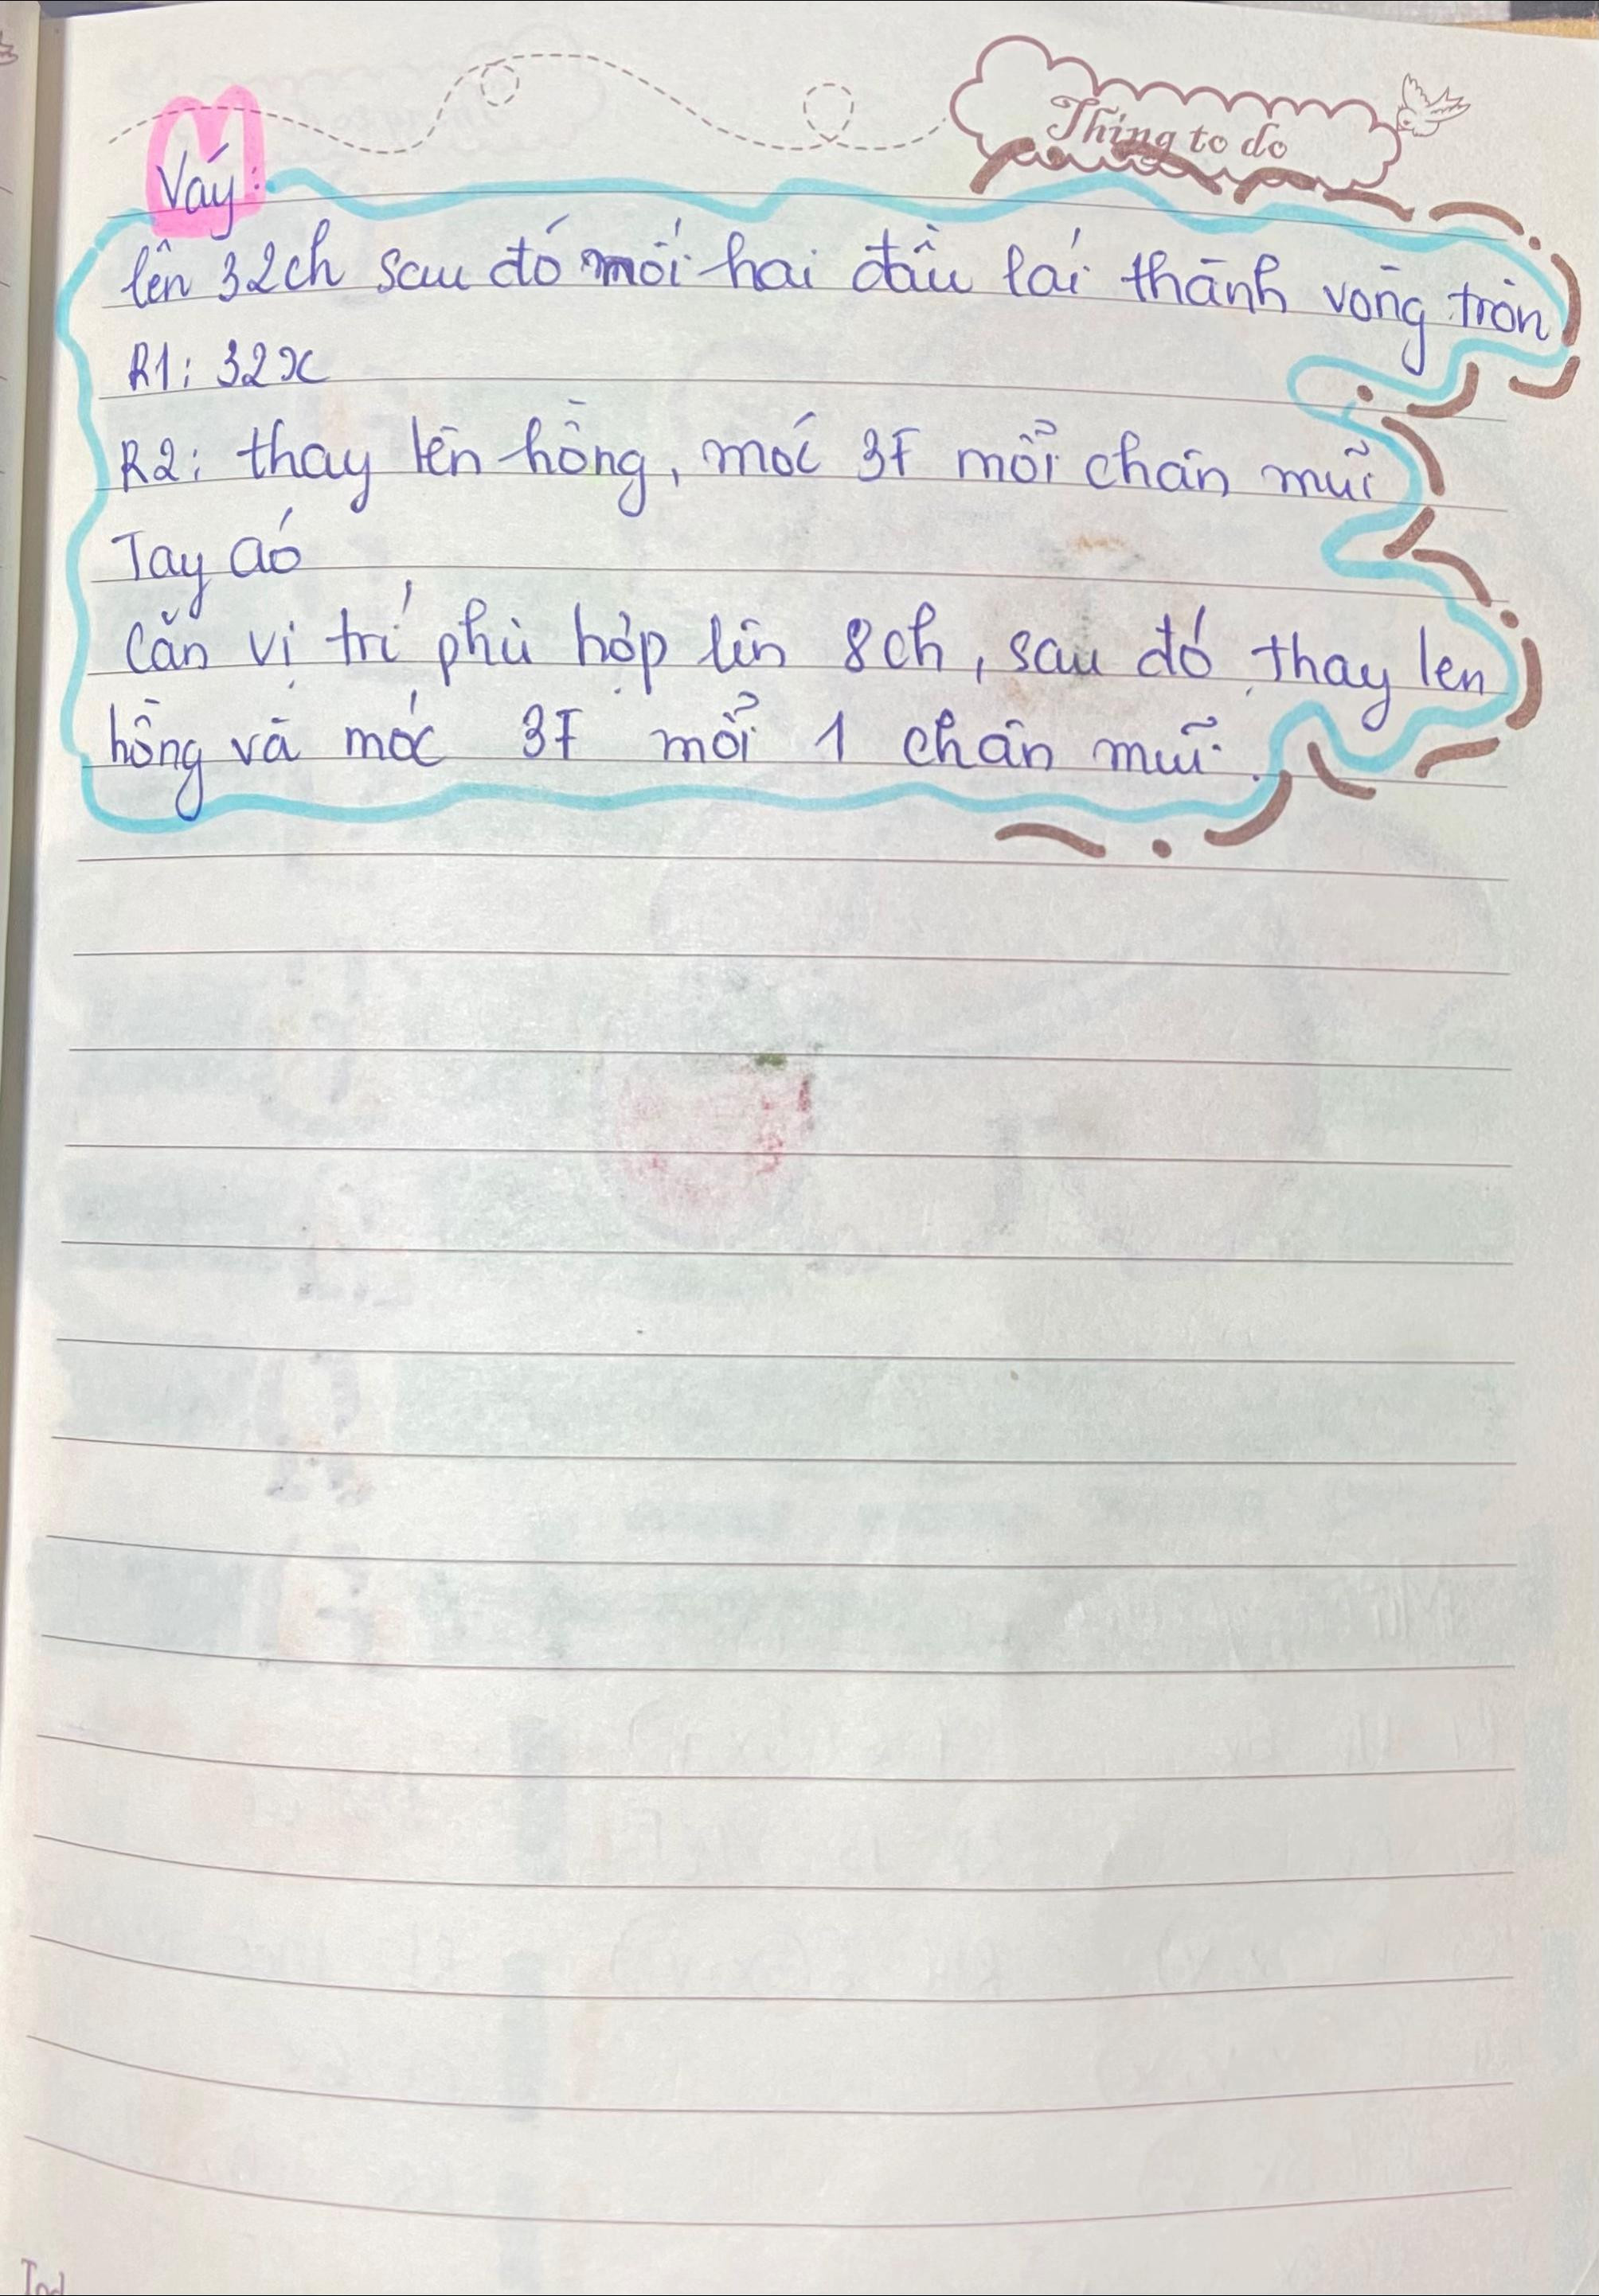 Thing to do
Váy:
lên 32ch sau đó mới hai đầu lại thành vòng tròn
R1: 32x
R2: thay len hồng, móc 3F mỗi chân mũi
Tay áo
Căn vị trí phù hợp lên 8ch, sau đó thay len
hồng và móc 3F mỗi 1 chân mũi.